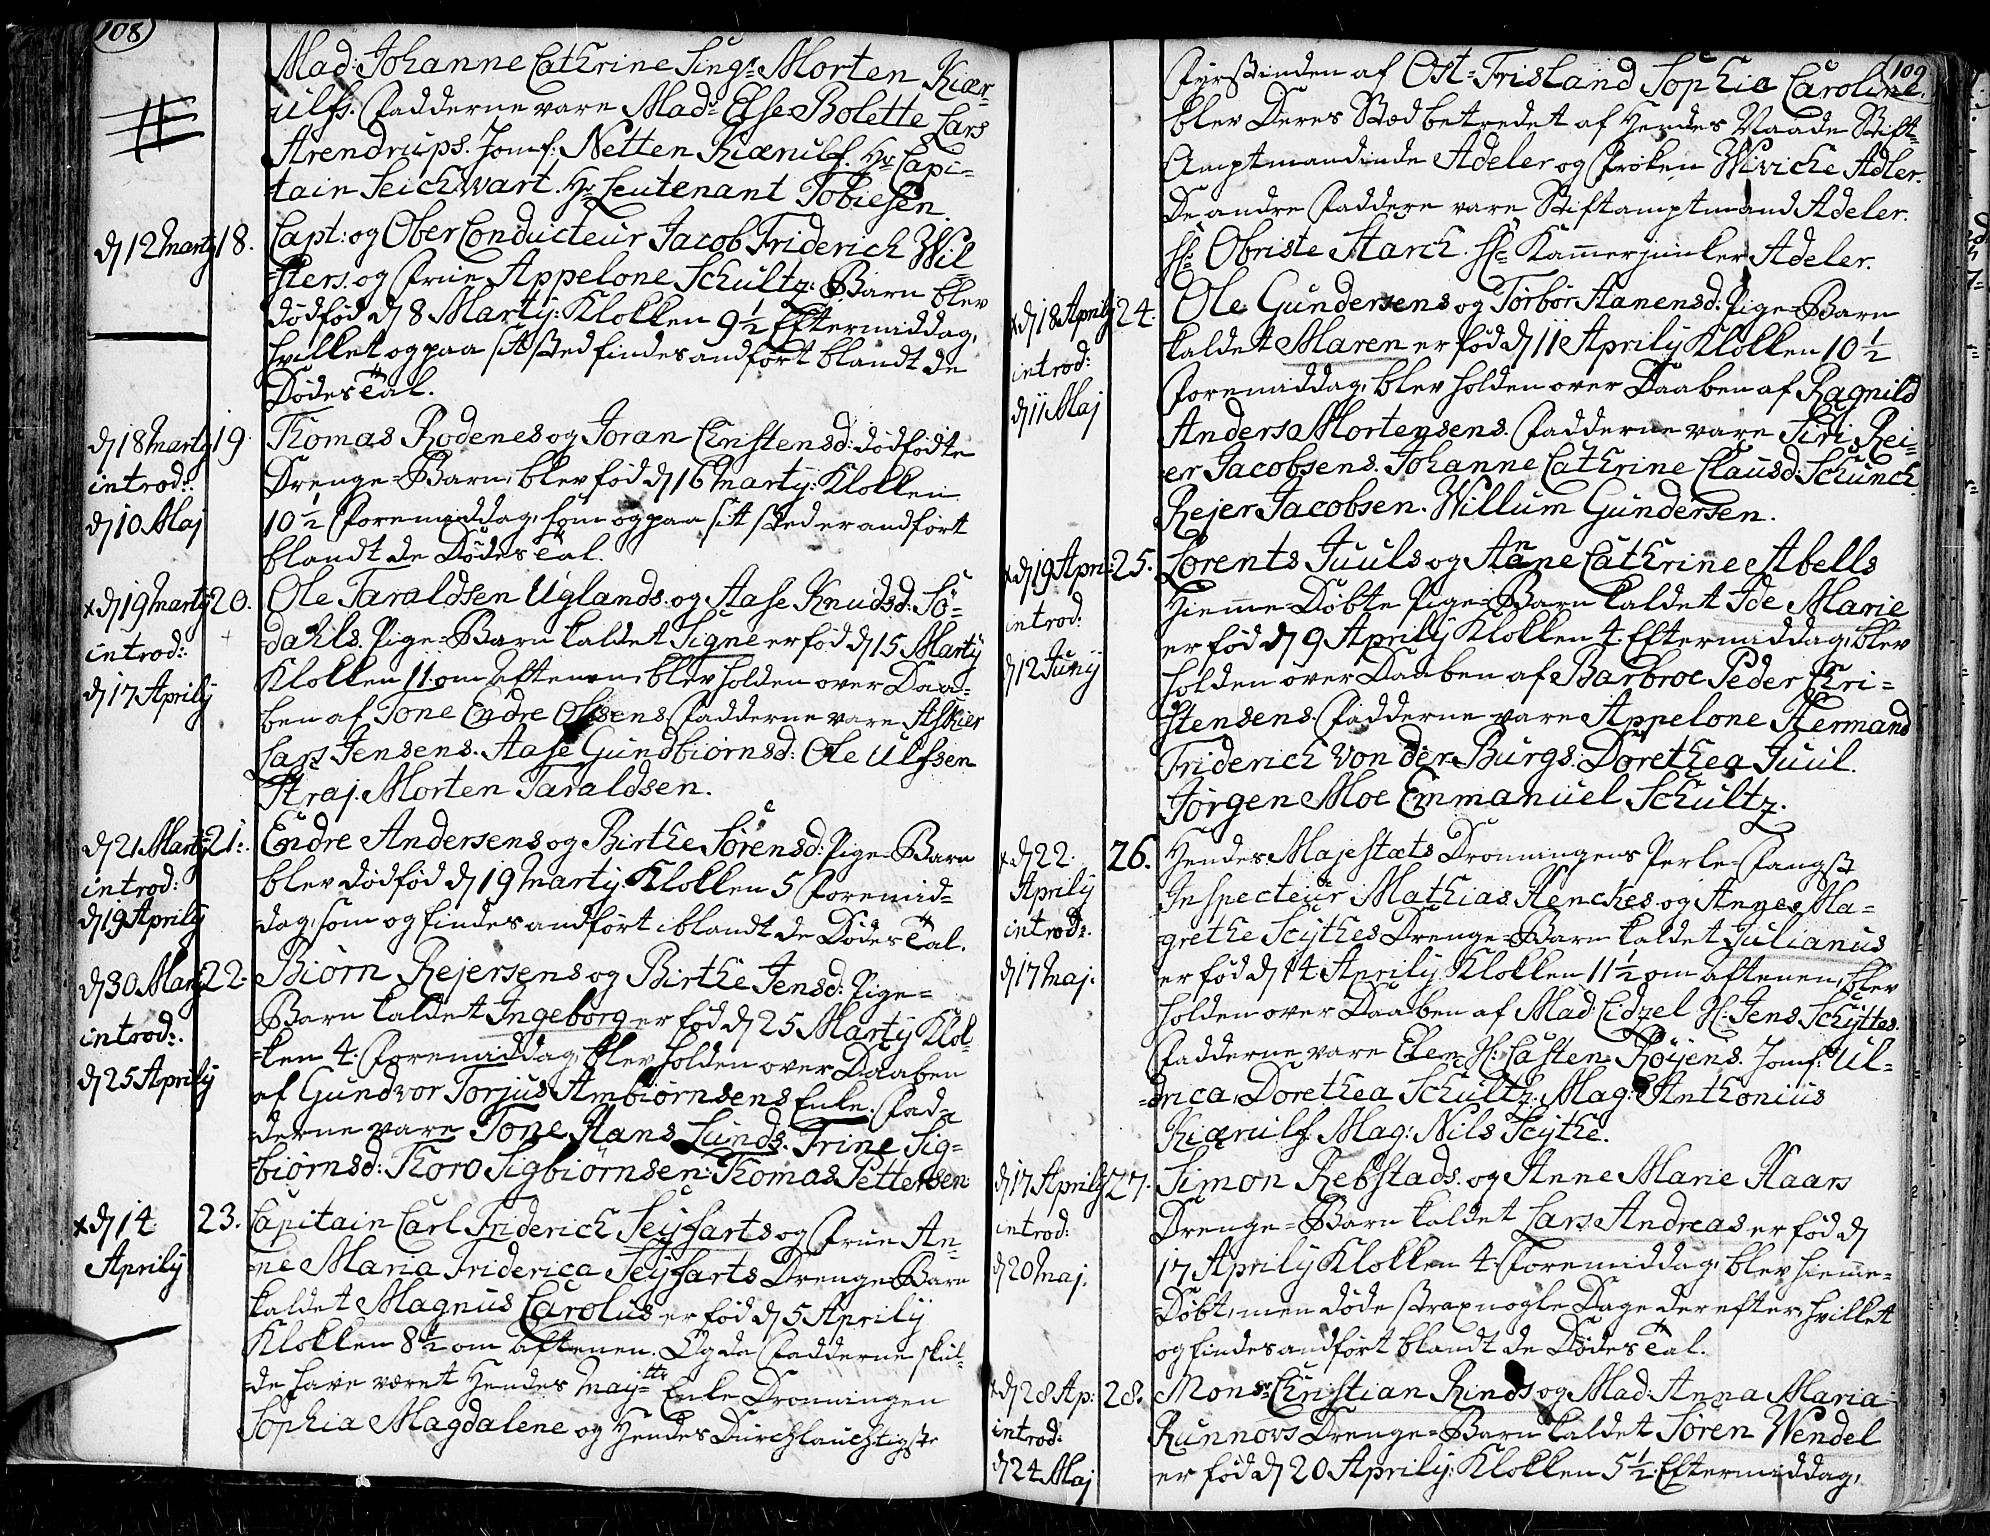 108
Mad: Johanne Cathrine Sing: Morten Kiær-
ulfs. Fadderne vare Mad: Else Bolette Lars
Arendrups. Jomf: Netten Kiærulf. Hr Capi-
tain Seichwart. Hr Leutenant Tobiesen.
d 12 Martij 18. Capt: og Ober Conducteur Jacob Friderich Wil-
sters og Frue Appelone Schultz: Barn blev
dødfød d 8 Martij: Klokken 9½ Eftermiddag,
hvilket og paa sit sted findes andført blandt de
Dødes Tal.
d 18 Martij 19. Thomas Rodenes og Joran Christensd: dødfødte
introd: Drenge-Barn, blev fød d 16 Martij: Klokken
d 10 Maj 10½ Foremiddag, som og paa sit sted er andført
blandt de Dødes Tal.
x d 19 Martij 20. Ole Taraldsen Uglands og Aase Knudsd: Sö-
introd: dahls. Pige-Barn kaldet Signe er fød d 15 Martij
d 17 Aprilij Klokken 11 om Aftenen, blev holden over Daa-
ben af Tone Endre Olsens Fadderne vare Askier
Lars Jensens. Aase Gundbiörnsd: Ole Ulfsen
Straj. Morten Taraldsen.
d 21 Martij 21. Endre Andersens og Birthe Sörensd: Pige-Barn
introd: blev dødfød d 19 Martij. Klokken 5 Foremid-
d 19 Aprilij dag, som og findes andført iblandt de Dødes Tal.
d 30 Martij 22. Biörn Rejersens og Birthe Jensd: Pige-
introd: Barn kaldet Ingeborg er fød d 25 Martij Klok-
d 25 Aprilij ken 4. Foremiddag, blev holden over Daaben
af Gundvor Torjus Ambiörnsens Enke. Fad-
derne vare Tone Hans Lunds. Trine Sig-
biörnsd: Thoro Sigbiörnsen: Thomas Pettersen
x d 14 23. Capitain Carl Friderich Seyfarts og Frue An-
Aprilij ne Maria Friderica Seyfarts Drenge-Barn
kaldet Magnus Carolus er fød d 5 Aprilij
Klokken 8½ om Aftenen. Og da Fadderne skul-
de have været Hendes Mayts Enke Dronningen
Sophia Magdalene og Hendes Durchlauchtigste
109
Fyrstinden af Ost-Frisland Sophia Caroline.
blev Deres Stæd betredet af Hendes Naade Stift-
Amptmandinde Adeler og Frøken Wiviche Adler.
De andre Faddere vare Stiftamptmand Adeler.
Hr Obriste Starch. Hr Kammerjunker Adeler.
x d 18 Aprilij 24. Ole Gundersens og Torbör Aanensd: Pige-Barn
introd: kaldet Maren er fød d 11 Aprilij Klokken 10½
d 11 Maj Foremiddag, blev holden over Daaben af Ragnild
Anders Mortensens. Fadderne vare Siri Rei-
er Jacobsens. Johanne Cathrine Clausd: Schunch.
Rejer Jacobsen. Willum Gundersen.
x d 19 April: 25. Lorents Juuls og Anne Cathrine Abells
introd: Hieme-Döbte Pige-Barn kaldet Ide Marie
d 12 Junij er fød d 9 Aprilij Klokken 4. Eftermiddag, blev
holden over Daaben af Barbroe Peder Chri-
stensens. Fadderne vare Appelone Hermand
Friderich von der Burgs. Dorethea Juul.
Jörgen Moe Emmanuel Schultz.
x d 22. 26. Hendes Majestæts Dronningens Perle-Fangst
Aprilij Inspecteur Mathias Henckes og Annes Ma-
introd: grethe Scythes Drenge-Barn kaldet Julianus
d 17 Maj. er fød d 14 Aprilij, Klokken 11½ om Aftenen, blev
holden over Daaben af Mad: Cidzel Hr: Jens Schyttes.
Fadderne vare Hr: Casten Röyens. Jomf: Ul-
drica Dorethea Schultz. Mag: Anthonius
Kiærulf. Mag: Nils Scythe.
d 17 Aprilij 27. Simon Rebstads. og Anne Marie Haars
introd: Drenge-Barn kaldet Lars Andreas er fød d
d 20 Maj. 17 Aprilij Klokken 4. Foremiddag, blev hieme-
Döbt, men døde strax nogle Dage derefter, hvilket
og findes andført blandt de Dødes Tal.
x d 28 Ap: 28. Monsr: Christian Rinds og Mad: Anna Maria
introd: Runnovs Drenge-Barn kaldet Sören Wendel
d 24 Maj er fød d 20 Aprilij: Klokken 5½: Eftermiddag,